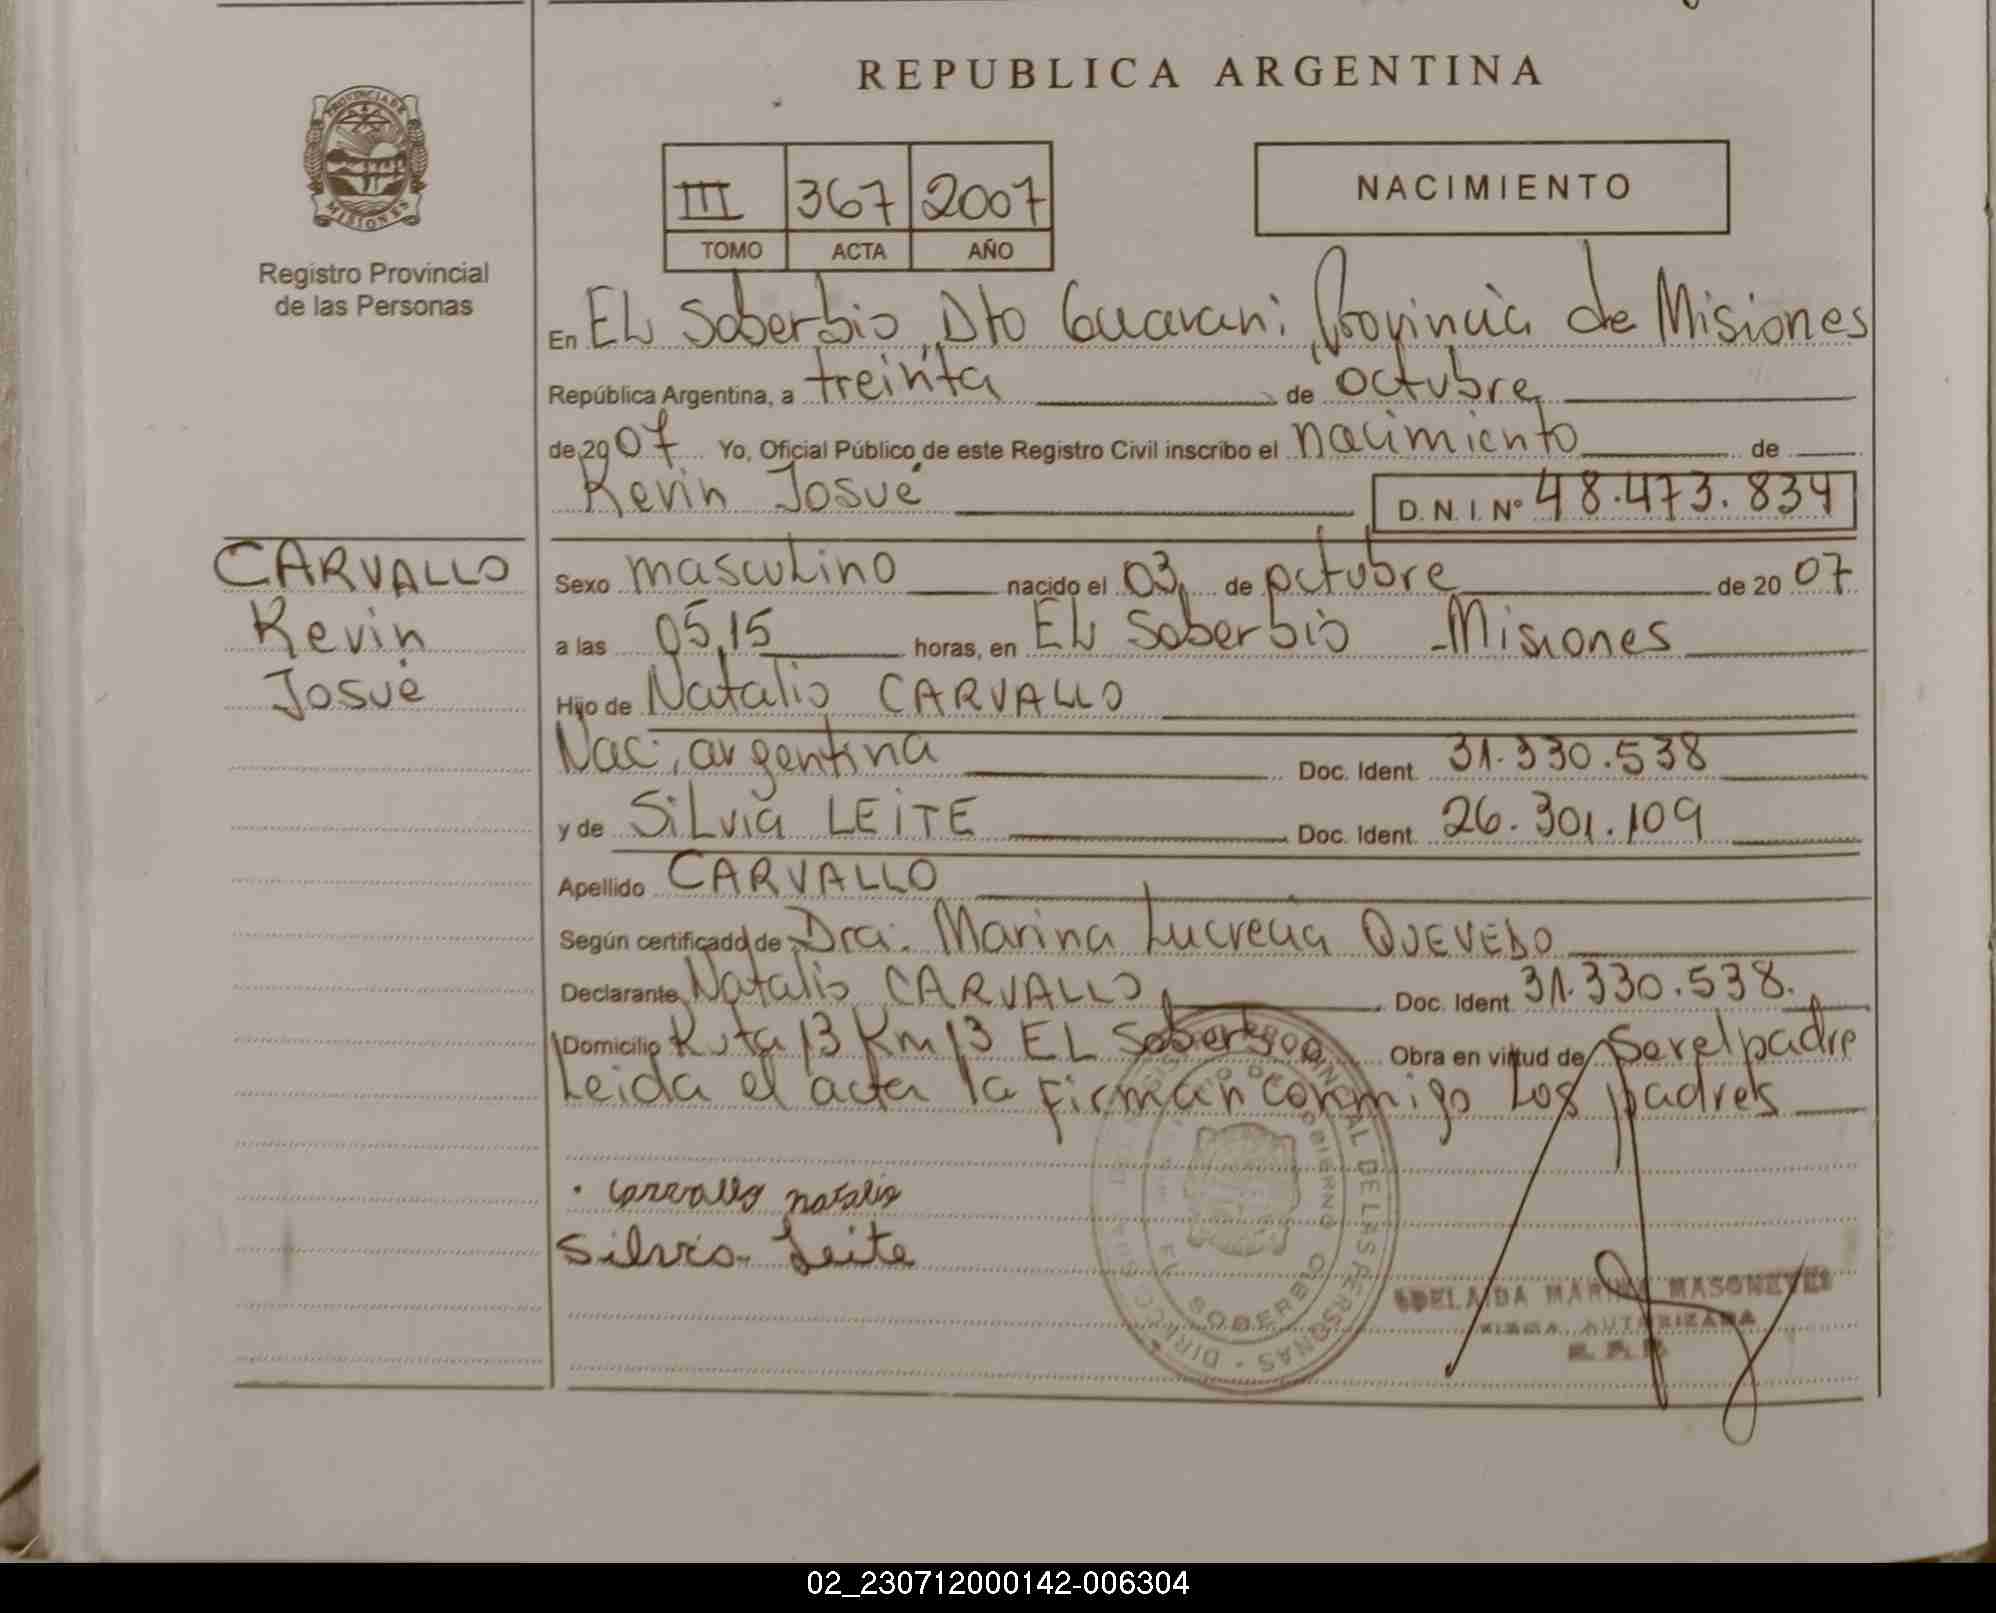 REPUBLICA ARGENTINA
PROVINCIA DE
MISIONES
Registro Provincial
de las Personas
III 367 2007
TOMO ACTA AÑO
NACIMIENTO
En EL Soberbio, Dto Guarani Provincia de Misiones
República Argentina, a treinta de octubre
de 2007 Yo, Oficial Público de este Registro Civil inscribo el nacimiento de
Kevin Josué D.N.I. Nº 48.473.834
CARVALLO
Kevin
Josué
Sexo masculino nacido el 03 de octubre de 2007
a las 05,15 horas, en EL Soberbio - Misiones
Hijo de Natalio CARVALLO
Nac: argentina Doc. Ident. 31.330.538
y de SiLvia LEITE Doc. Ident. 26.301.109
Apellido CARVALLO
Según certificado de Dra. Marina Lucrecia QUEVEDO
Declarante Natalio CARVALLO Doc. Ident. 31.330.538.
Domicilio Ruta 13 Km 13 EL Soberbio Obra en virtud de Ser el padre
Leida el acta la firman conmigo Los padres
Carvallo natalio
Silvia Leite
EL SOBERBIO
DELAIDA MARINA
AUTORIZADA
02_230712000142-006304